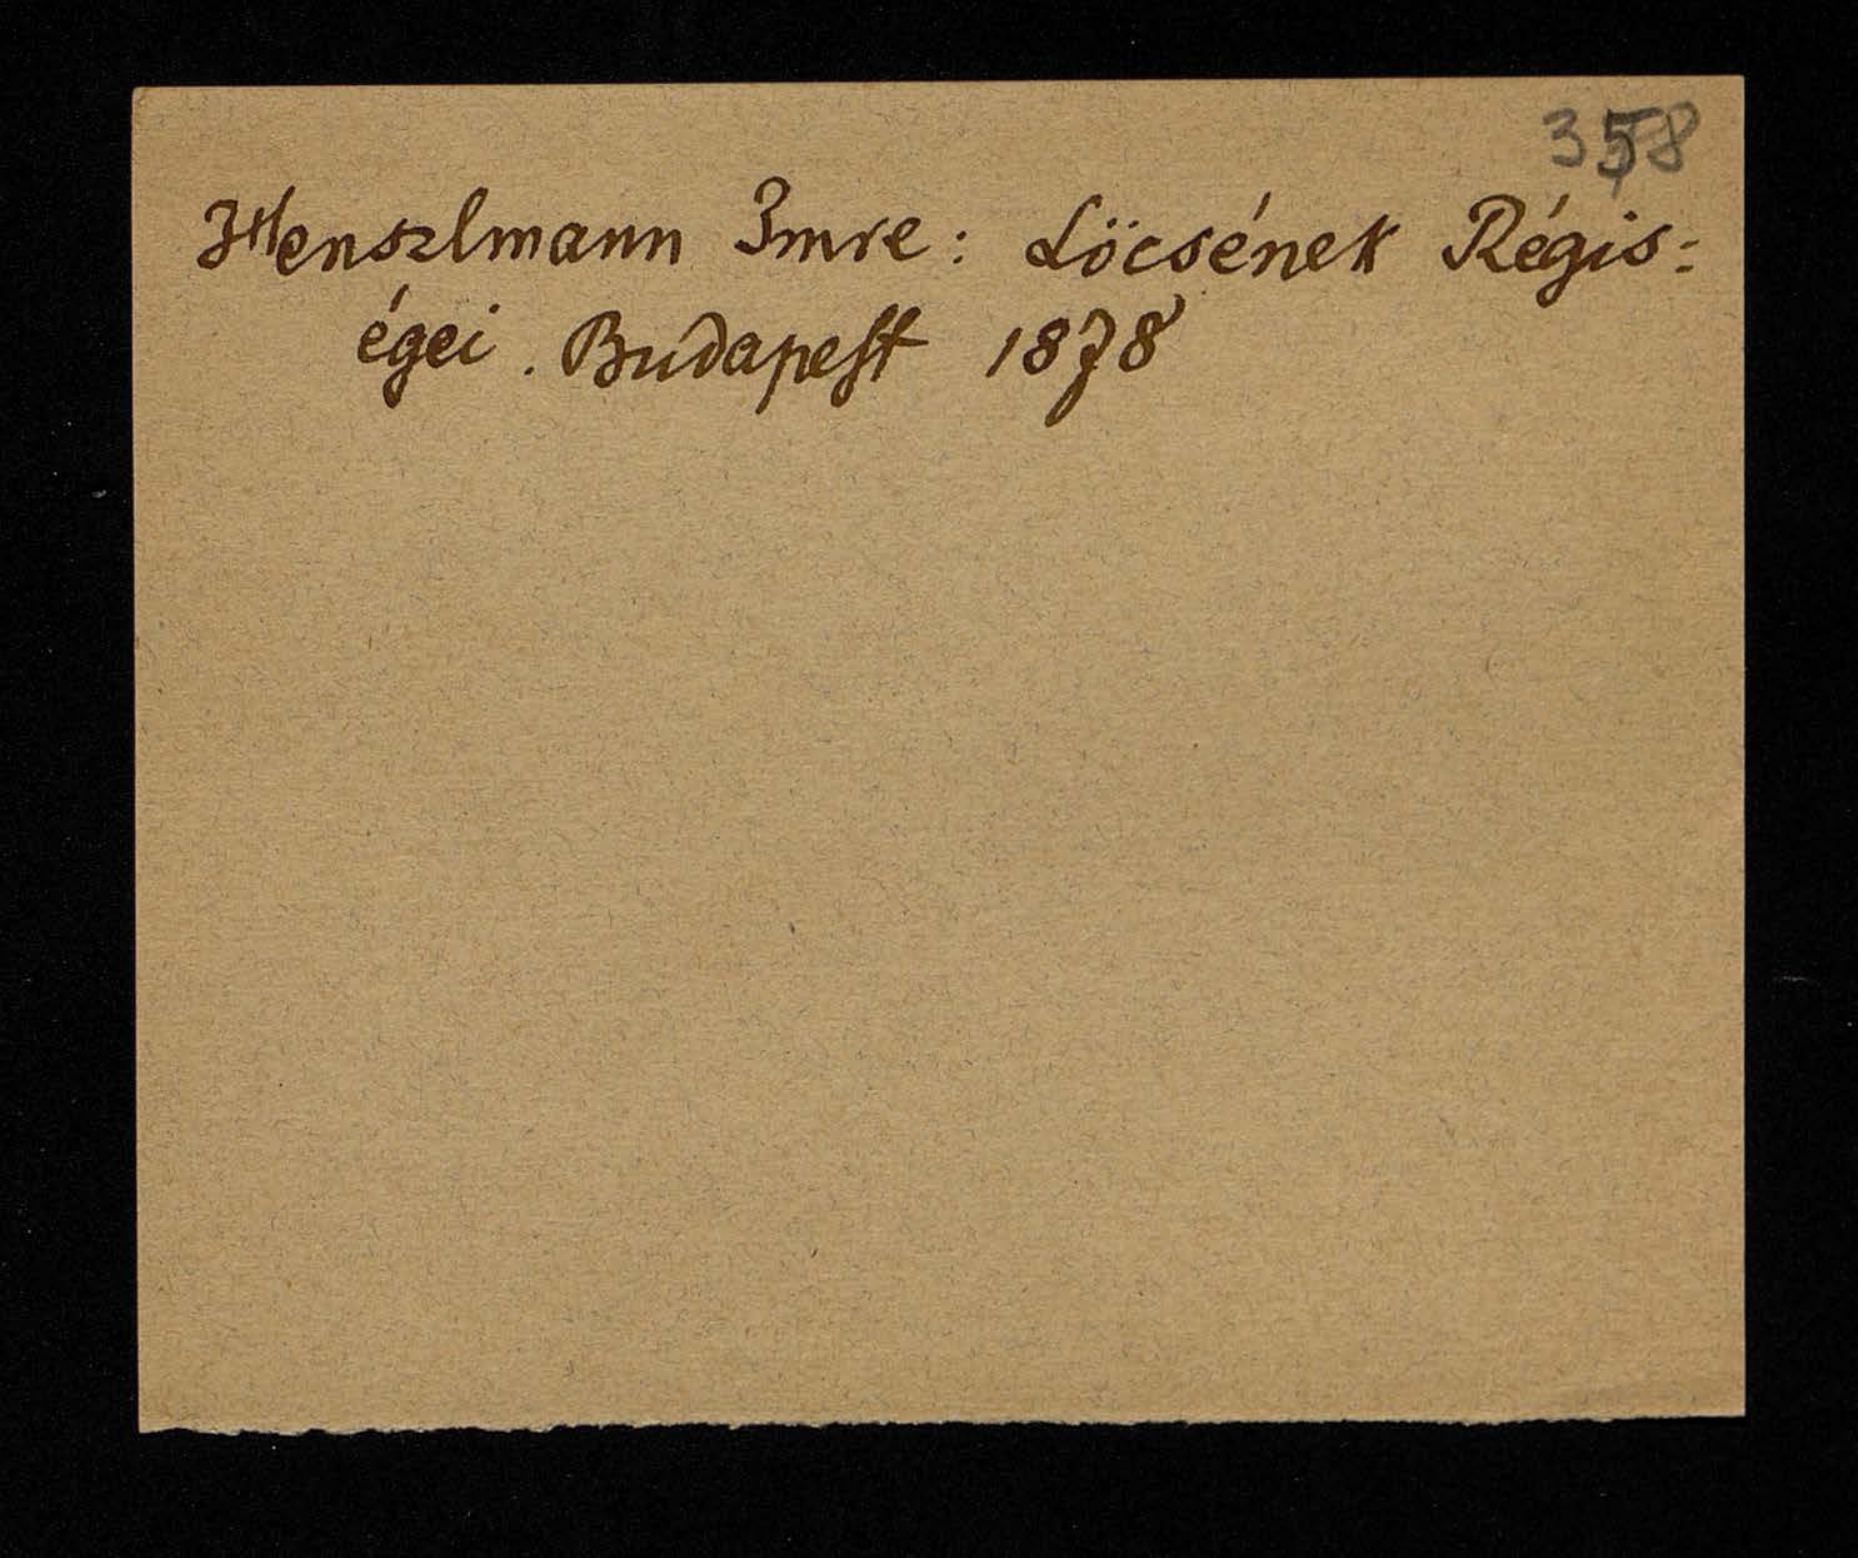 358
Henszlmann Imre: Löcsének Régis:
égei. Budapest 1878